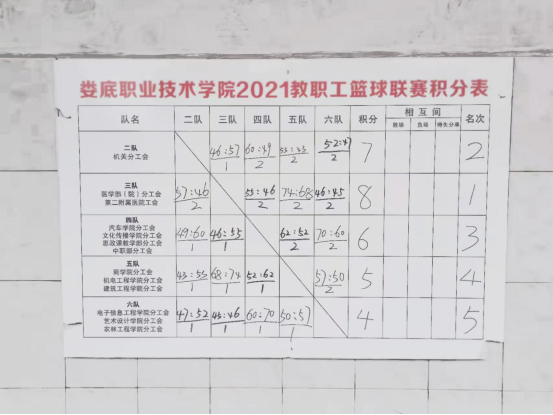 娄底职业技术学院2021教职工篮球联赛积分表
队名 二队 三队 四队 五队 六队 积分 相互间 名次
胜场 负场 得失分率
二队
机关分工会
46:57 60:49 55:45 52:47 7 2
1 2 2 2
三队
医学部（院）分工会
第二附属医院工会
57:46 55:46 74:68 46:45 8 1
2 2 2 2
四队
汽车学院分工会
文化传播学院分工会
思政课教学部分工会
中职部分工会
49:60 46:55 62:52 70:60 6 3
1 1 2 2
五队
商学院分工会
机电工程学院分工会
建筑工程学院分工会
45:55 68:74 52:62 57:50 5 4
1 1 1 2
六队
电子信息工程学院分工会
艺术设计学院分工会
农林工程学院分工会
47:52 45:46 60:70 50:57 4 5
1 1 1 1